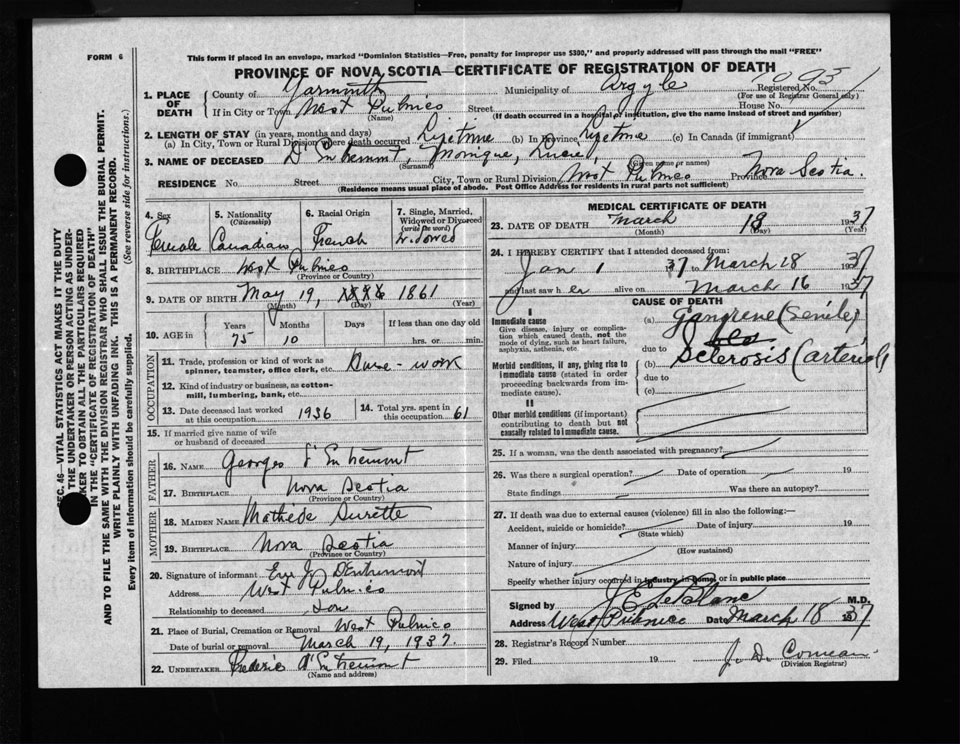 FORM 6
This form if placed in an envelope, marked "Dominion Statistics—Free, penalty for improper use $300," and properly addressed will pass through the mail "FREE"
PROVINCE OF NOVA SCOTIA—CERTIFICATE OF REGISTRATION OF DEATH
1. PLACE OF DEATH
County of Yarmouth Municipality of Argyle Registered No. 1093
(For use of Registrar General only)
If in City or Town West Pubnico Street House No.
(Name) (If death occurred in a hospital or institution, give the name instead of street and number)
2. LENGTH OF STAY (in years, months and days)
(a) In City, Town or Rural Division where death occurred Lifetime (b) In Province Lifetime (c) In Canada (if immigrant)
3. NAME OF DECEASED D'Entremont, Monique,
(Surname) (Given name or names)
RESIDENCE No. Street City, Town or Rural Division West Pubnico Province Nova Scotia.
(Residence means usual place of abode. Post Office Address for residents in rural parts not sufficient)
4. Sex Female
5. Nationality (Citizenship) Canadian
6. Racial Origin French
7. Single, Married, Widowed or Divorced (write the word) Widowed
8. BIRTHPLACE West Pubnico
(Province or Country)
9. DATE OF BIRTH May 19, 1861
(Month) (Day) (Year)
10. AGE in Years 75 Months 10 Days If less than one day old hrs. or min.
OCCUPATION
11. Trade, profession or kind of work as spinner, teamster, office clerk, etc. House-work
12. Kind of industry or business, as cotton-mill, lumbering, bank, etc.
13. Date deceased last worked at this occupation 1936
14. Total yrs. spent in this occupation 61
15. If married give name of wife or husband of deceased
FATHER
16. NAME Georges d'Entremont
17. BIRTHPLACE Nova Scotia
(Province or Country)
MOTHER
18. MAIDEN NAME Mathede Surette
19. BIRTHPLACE Nova Scotia
(Province or Country)
20. Signature of informant J D'Entremont
Address West Pubnico
Relationship to deceased Son
21. Place of Burial, Cremation or Removal West Pubnico
Date of burial or removal March 19, 1937.
22. UNDERTAKER Frederic d'Entremont
(Name and address)
MEDICAL CERTIFICATE OF DEATH
23. DATE OF DEATH March 18 1937
(Month) (Day) (Year)
24. I HEREBY CERTIFY that I attended deceased from:
Jan 1 1937 to March 18 1937
and last saw her alive on March 16 1937
CAUSE OF DEATH
I
Immediate cause
Give disease, injury or complication which caused death, not the mode of dying, such as heart failure, asphyxia, asthenia, etc.
(a) Gangrene (Senile)
due to
Morbid conditions, if any, giving rise to immediate cause (stated in order proceeding backwards from immediate cause).
(b) Sclerosis (arterial)
due to
(c)
II
Other morbid conditions (if important) contributing to death but not causally related to immediate cause.
25. If a woman, was the death associated with pregnancy?
26. Was there a surgical operation? Date of operation 19
State findings Was there an autopsy?
27. If death was due to external causes (violence) fill in also the following:—
Accident, suicide or homicide? Date of injury 19
(State which)
Manner of injury
(How sustained)
Nature of injury
Specify whether injury occurred in industry, in home, or in public place
Signed by J E LeBlanc M.D.
Address West Pubnico Date March 18 1937
28. Registrar's Record Number
29. Filed 19 J. D. Comeau
(Division Registrar)
SEC. 46—VITAL STATISTICS ACT MAKES IT THE DUTY
THE UNDERTAKER OR PERSON ACTING AS UNDER-
TAKER TO OBTAIN ALL THE PARTICULARS REQUIRED
IN THE "CERTIFICATE OF REGISTRATION OF DEATH"
AND TO FILE THE SAME WITH THE DIVISION REGISTRAR WHO SHALL ISSUE THE BURIAL PERMIT.
WRITE PLAINLY WITH UNFADING INK. THIS IS A PERMANENT RECORD.
Every item of information should be carefully supplied. (See reverse side for instructions.)